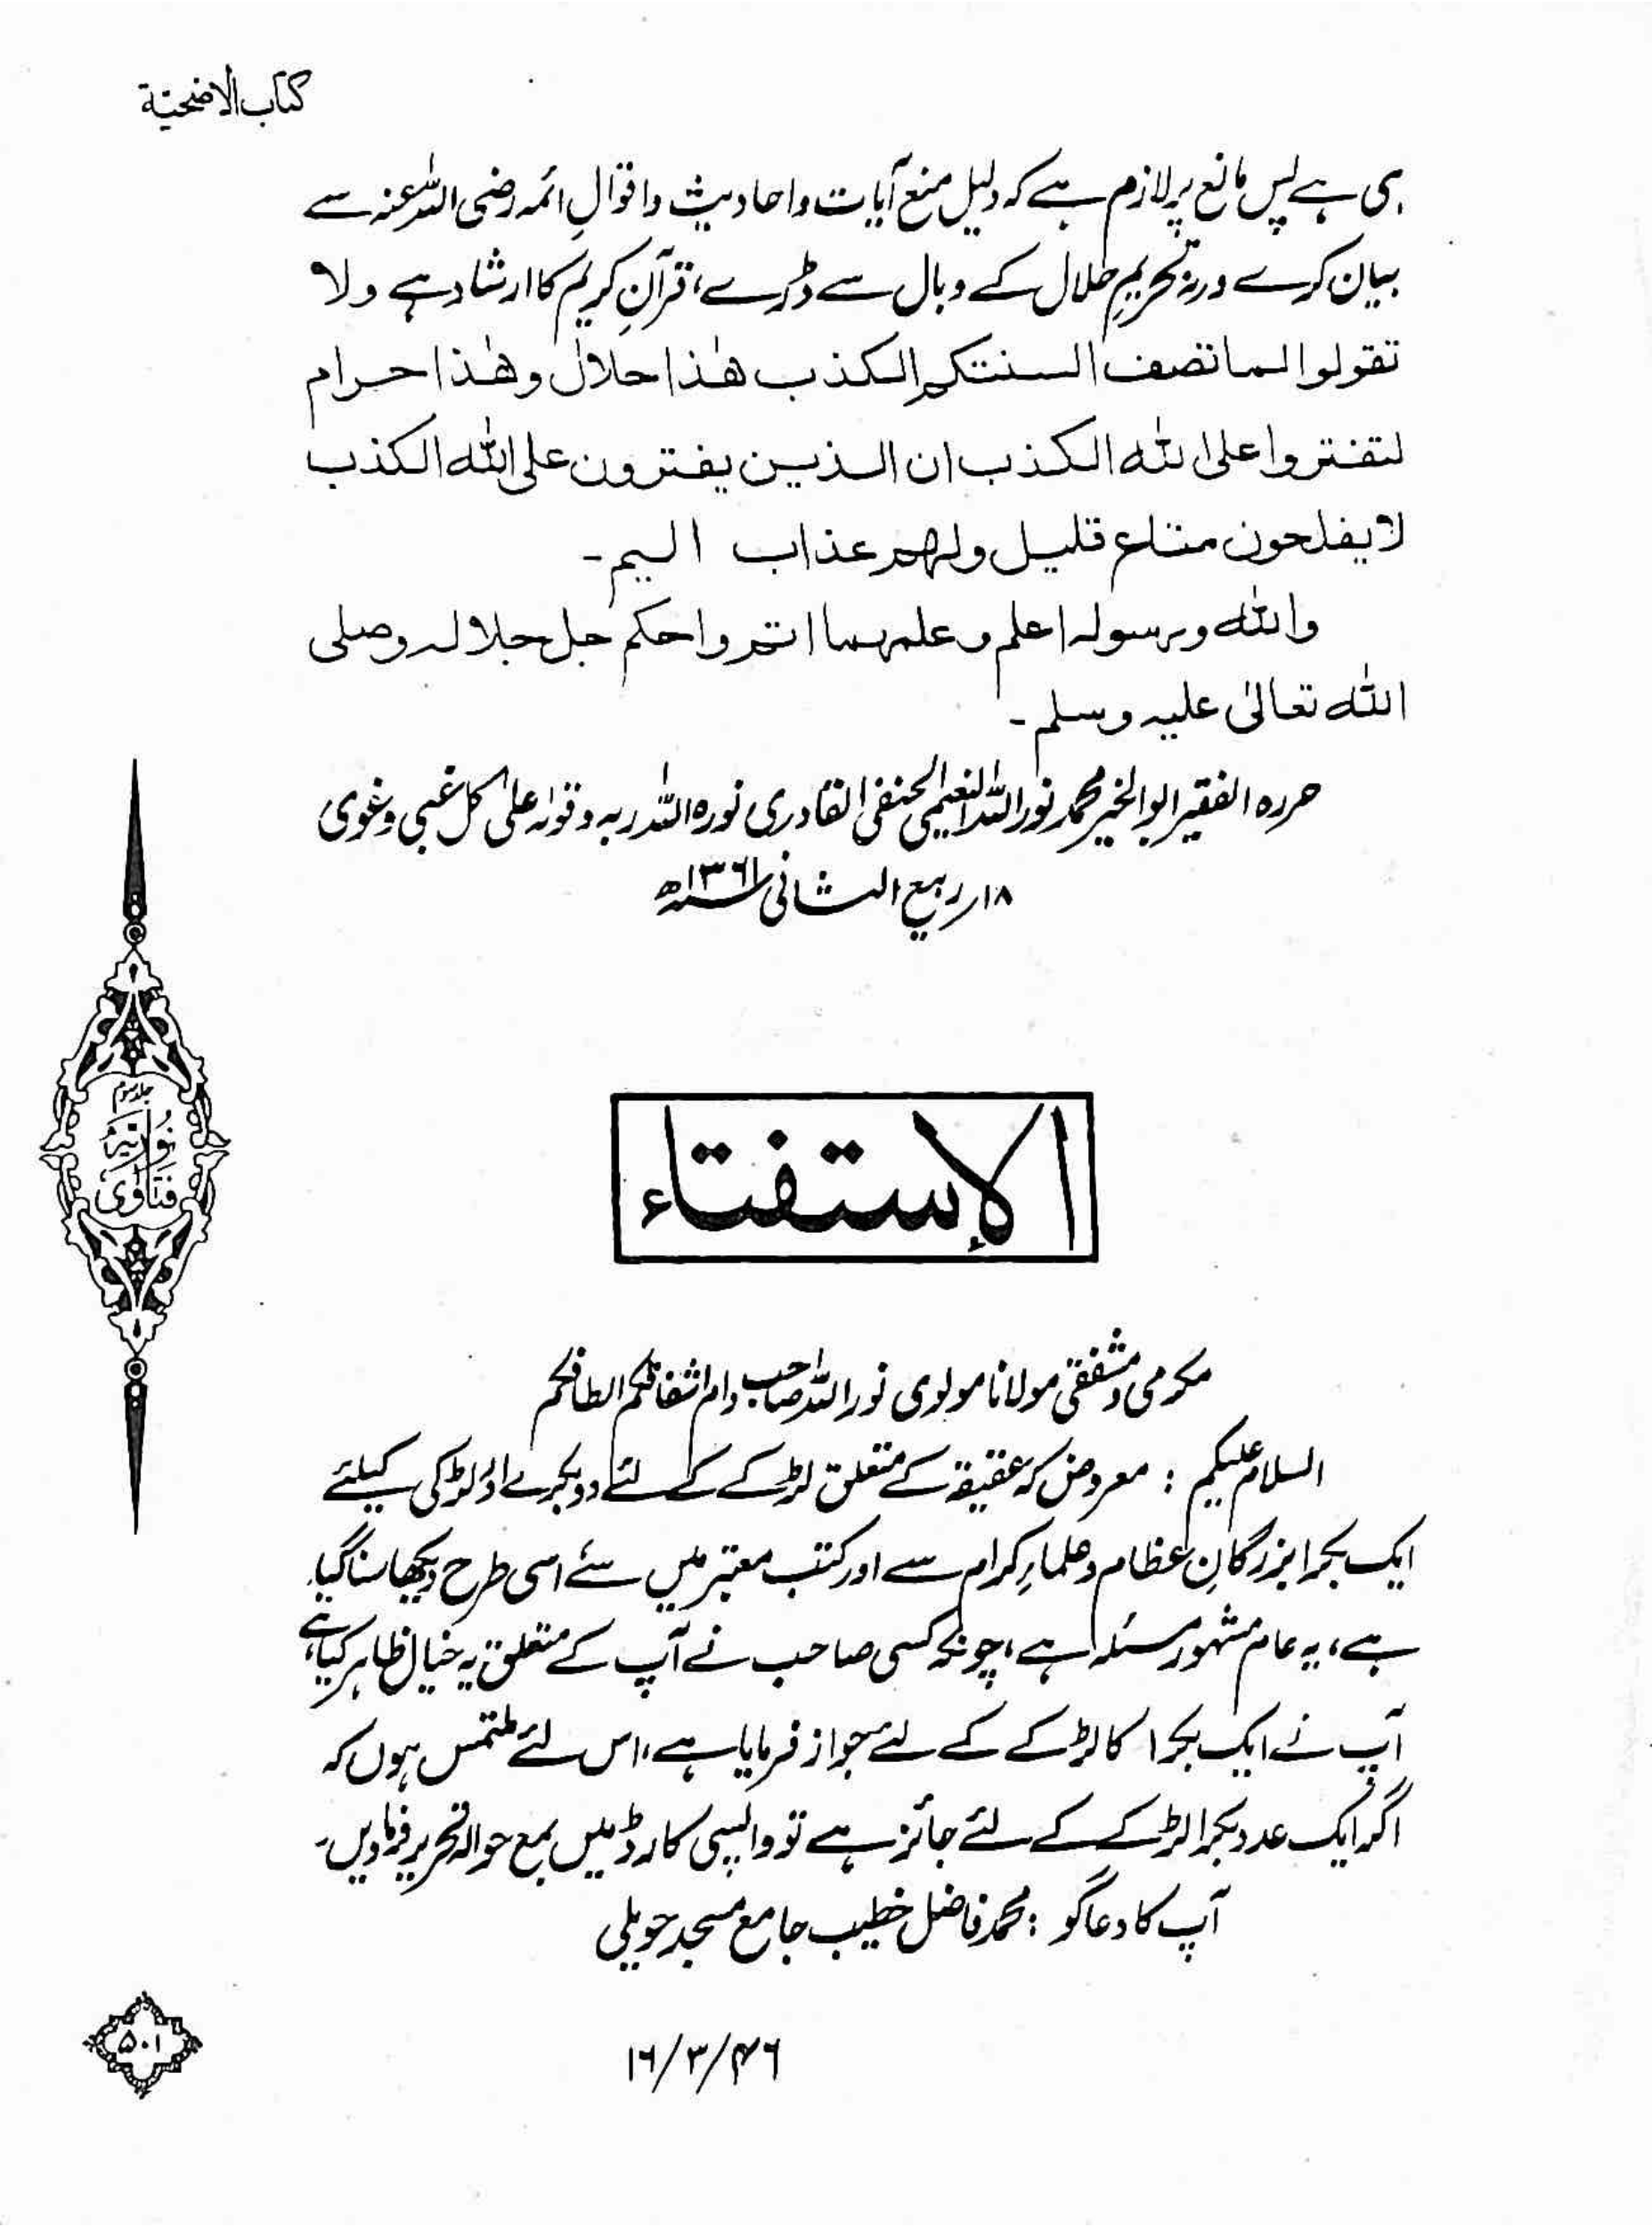 کتاب الاضحیۃ
ہی ہے پس مانع پر لازم ہے کہ دلیل منع آیات واحادیث واقوالِ ائمہ رضی اللہ عنہ سے
بیان کرے ورنہ تحریمِ حلال کے وبال سے ڈرے، قرآنِ کریم کا ارشاد ہے ولا
تقولوا لما تصف السنتکم الکذب ھٰذا حلال وھٰذا حرام
لتفتروا علی اللہ الکذب ان الذین یفترون علی اللہ الکذب
لا یفلحون متاع قلیل ولھم عذاب الیم۔
واللہ ورسولہ اعلم وعلمہما اتم واحکم جل جلالہ وصلی
اللہ تعالیٰ علیہ وسلم۔
حررہ الفقیر ابوالخیر محمد نوراللہ النعیمی الحنفی القادری نورہ اللہ ربہ وقواہ علیٰ کل غبی وغوی
۱۸؍ ربیع الثانی ۱۳۶۱ھ
الإستفتاء
مکرمی ومشفقی مولانا مولوی نوراللہ صاحب دام اشفاقکم الطافکم
السلام علیکم : معروض کہ عقیقہ کے متعلق لڑکے کے لئے دو بکرے اور لڑکی کیلئے
ایک بکرا بزرگانِ عظام وعلماءِ کرام سے اور کتب معتبر میں سے اسی طرح دیکھا سنا گیا
ہے، یہ عام مشہور مسئلہ ہے، چونکہ کسی صاحب نے آپ کے متعلق یہ خیال ظاہر کیا ہے،
آپ نے ایک بکرا کا لڑکے کے لئے جواز فرمایا ہے، اس لئے ملتمس ہوں کہ
اگر ایک عدد بکرا لڑکے کے لئے جائز ہے تو واپسی کارڈ میں بمع حوالہ تحریر فرمادیں۔
آپ کا دعاگو : محمد فاضل خطیب جامع مسجد حویلی
۱۶/۳/۴۶
جلد سوم
فتاویٰ نوریہ
۵۰۱